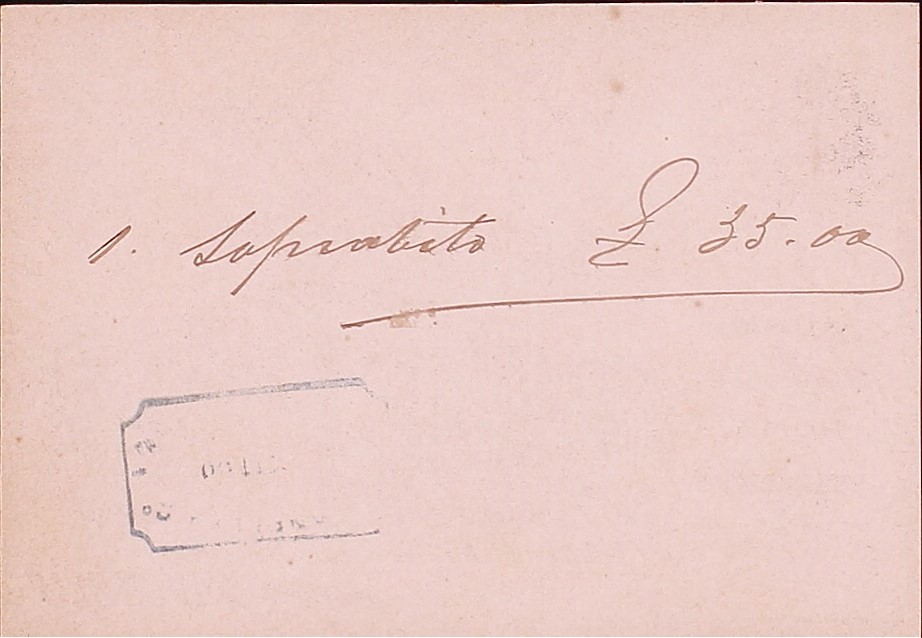 1. Soprabito £ 35.00